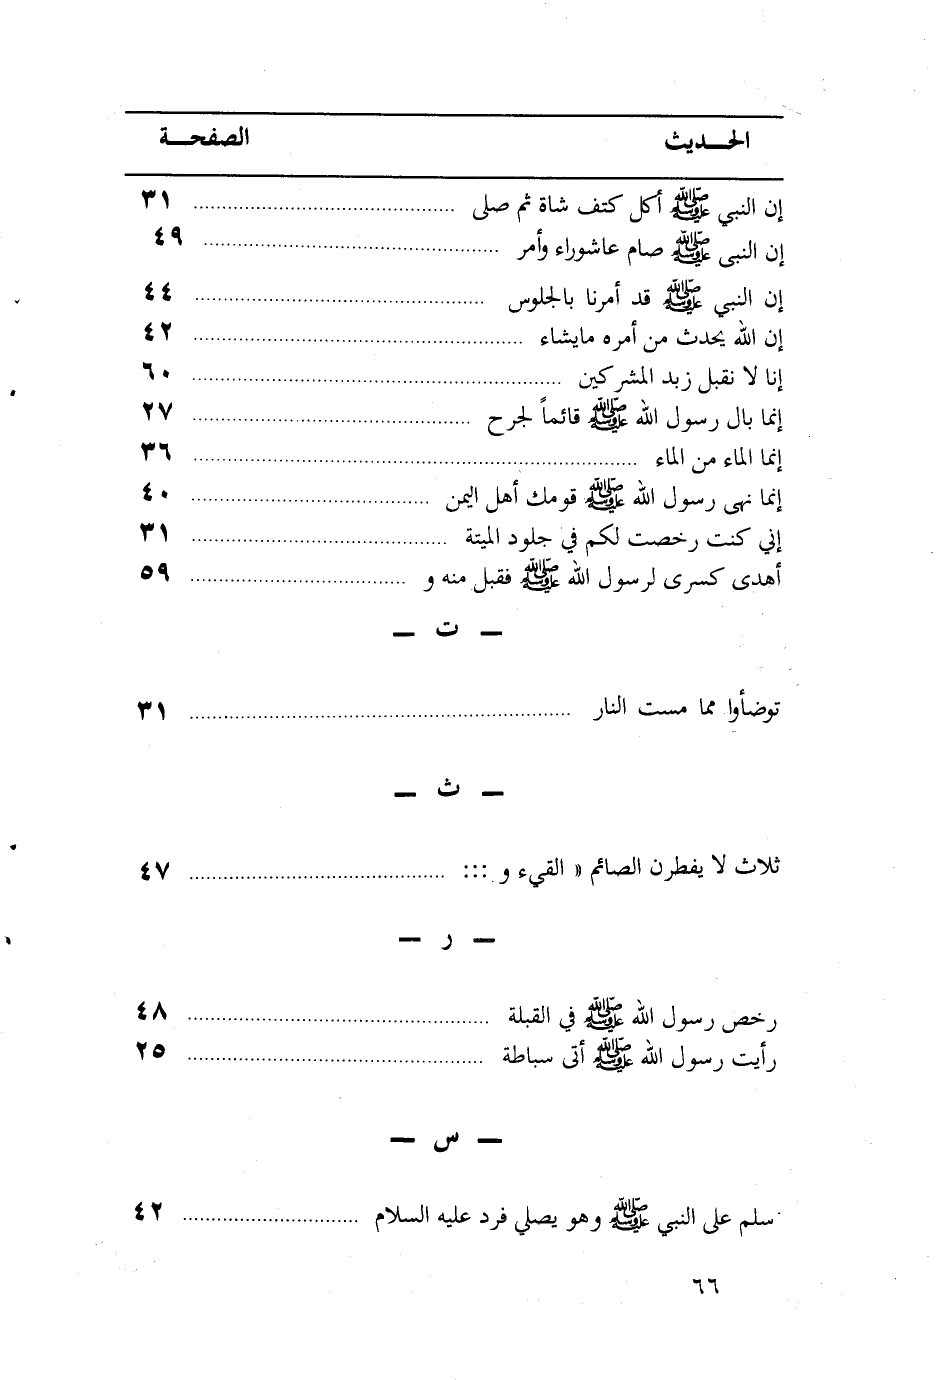 الحـــديث الصفحـــة
إن النبي ﷺ أكل كتف شاة ثم صلى ........ ٣١
إن النبى ﷺ صام عاشوراء وأمر ........ ٤٩
إن النبي ﷺ قد أمرنا بالجلوس ........ ٤٤
إن الله يحدث من أمره مايشاء ........ ٤٢
إنا لا نقبل زبد المشركين ........ ٦٠
إنما بال رسول الله ﷺ قائماً لجرح ........ ٢٧
إنما الماء من الماء ........ ٣٦
إنما نهى رسول الله ﷺ قومك أهل اليمن ........ ٤٠
إني كنت رخصت لكم في جلود الميتة ........ ٣١
أهدى كسرى لرسول الله ﷺ فقبل منه و ........ ٥٩
— ت —
توضأوا مما مست النار ........ ٣١
— ث —
ثلاث لا يفطرن الصائم « القيء و ::: ........ ٤٧
— ر —
رخص رسول الله ﷺ في القبلة ........ ٤٨
رأيت رسول الله ﷺ أتى سباطة ........ ٢٥
— س —
سلم على النبي ﷺ وهو يصلي فرد عليه السلام ........ ٤٢
٦٦